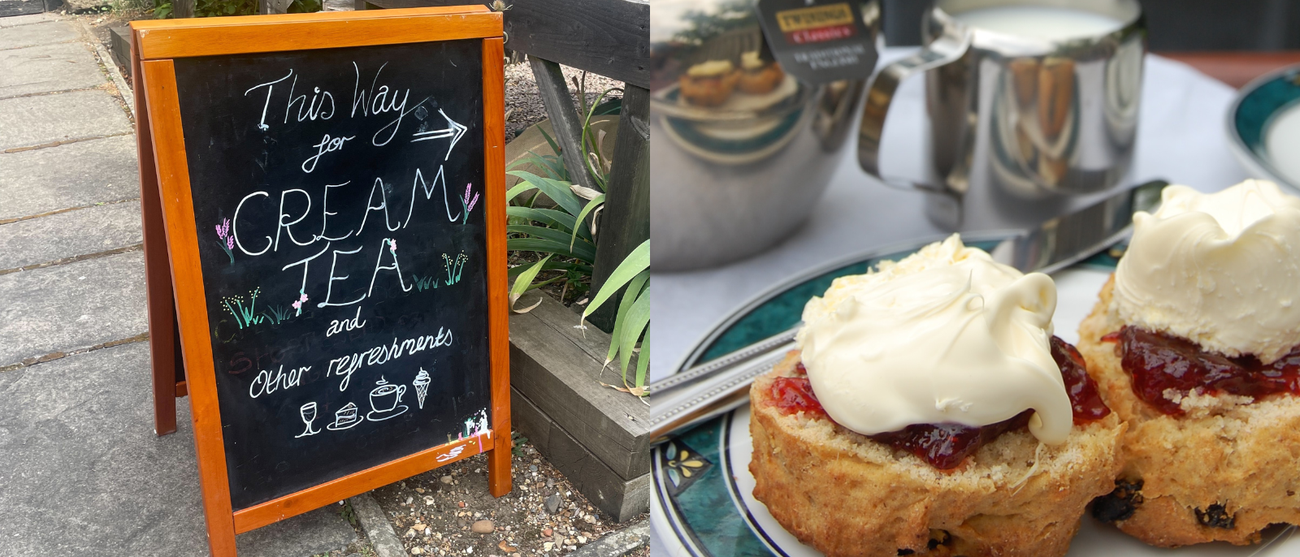 This Way
for
CREAM
TEA
and
Other refreshments
TWININGS
Classics
TRADITIONAL
ENGLISH